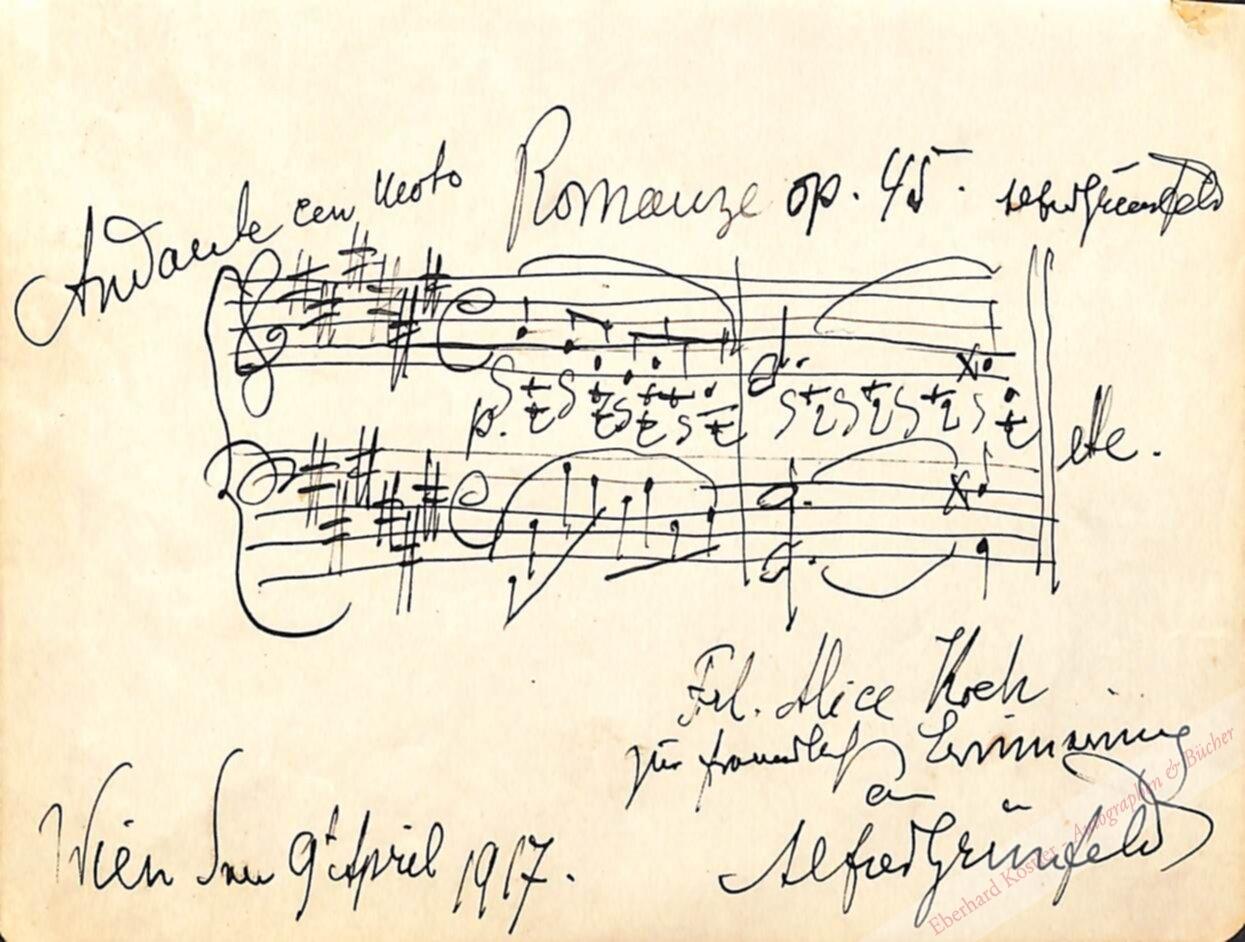 Romanze op. 45. Alfred Grünfeld
Andante con moto
p.
etc.
Frl. Alice Koch
zur freundlich Erinnerung
an
Alfred Grünfeld
Wien den 9t April 1917.
Eberhard Köstler · Autographen & Bücher